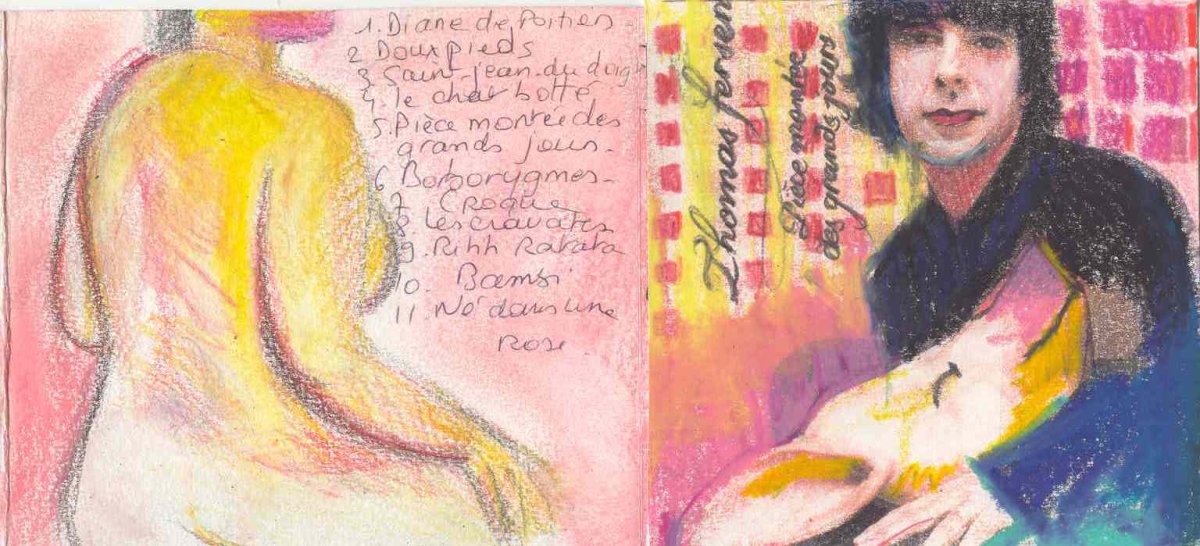 1. Diane de Poitiers
2 Doux pieds
3 Saint-jean-du doigt
4. le chat botté
5. Pièce montée des
grands jours-
6 Borborygmes-
7 Croque
8 Les cravates
9. Rihh Ratata
10. Bambi
11 Né dans une
rose
Thomas fersen
Pièce montée
des grands jours